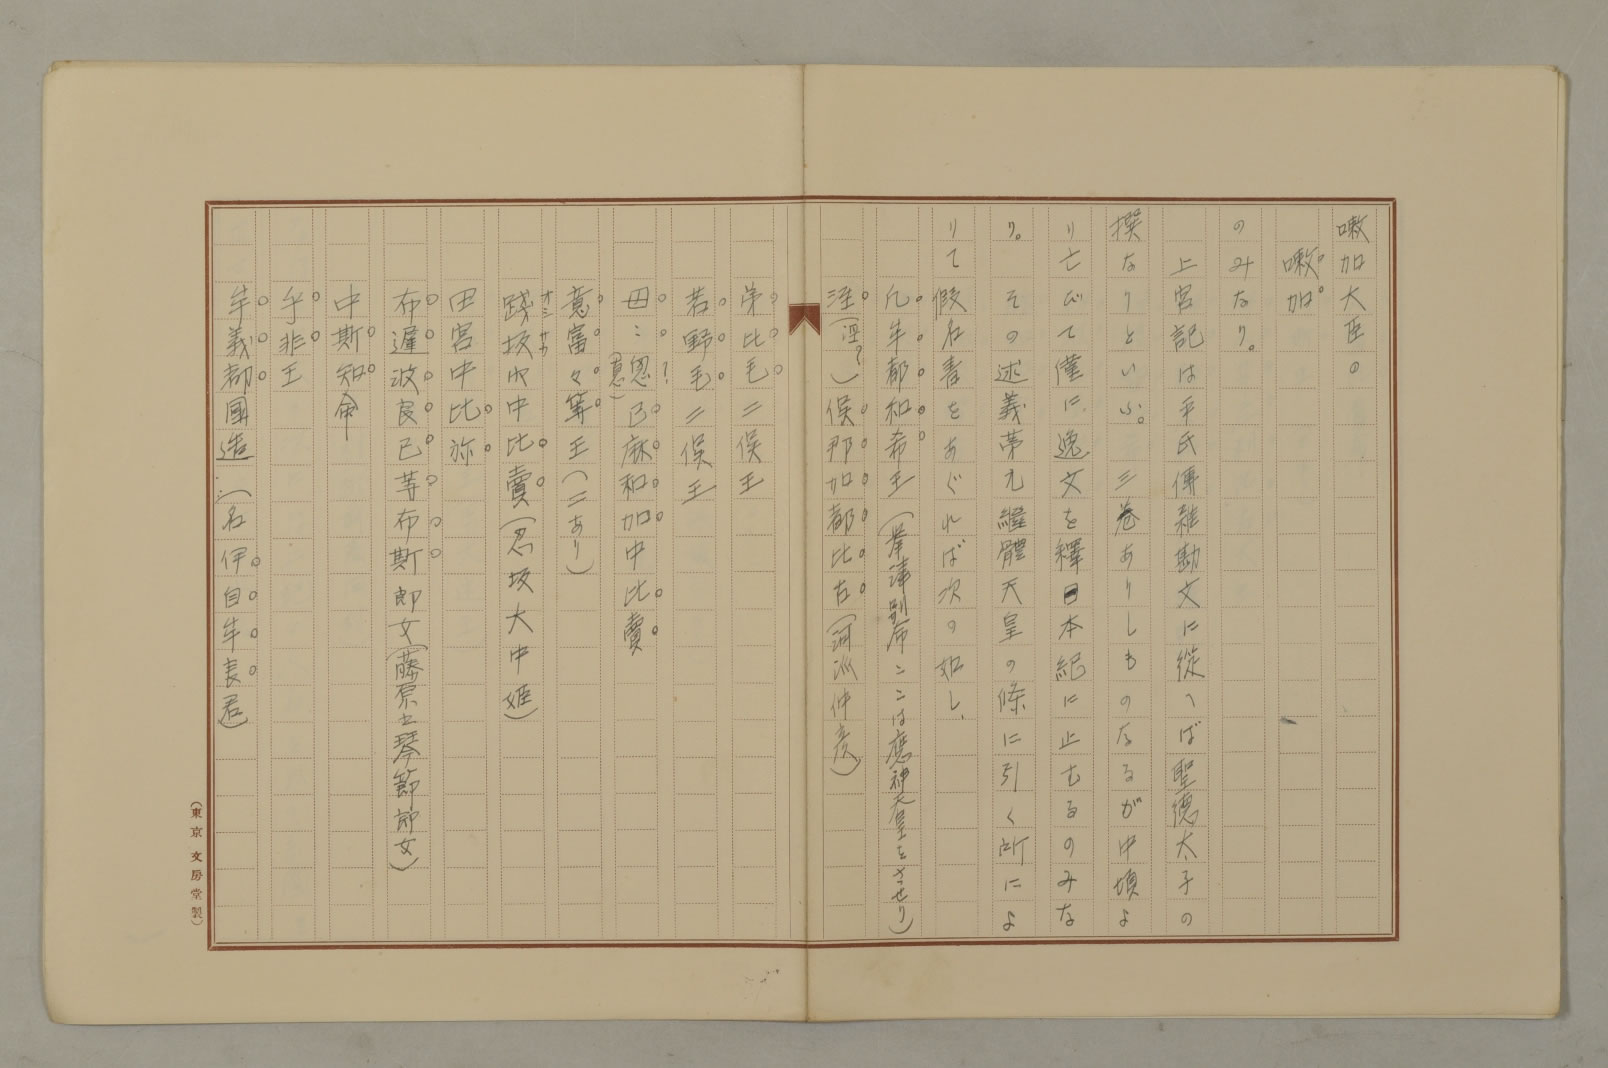 嗽加大臣の
嗽加
のみなり。
上宮記は平氏傳雜勘文に從へば聖德太子の
撰なりといふ。三卷ありしものなるが中頃よ
り亡びて僅に逸文を釋日本紀に止むるのみな
り。その述義第九繼體天皇の條に引く所によ
りて假名書をあぐれば次の如し、
凡牟都和希王(譽津別命ここは應神天皇をさせり)
洷(涇?)俣那加都比古(河派仲彥)
弟比毛二俣王
若野毛二俣王
母〻恩己麻和加中比賣
?
(意)
意富々等王(二あり)
踐坂大中比賣(忍坂大中姬)
オシサカ
田宮中比弥
布遲波良己等布斯郎女(藤原之琴節郎女)
中斯知命
乎非王
牟義都國造(名伊自牟良君)
(東京文房堂製)